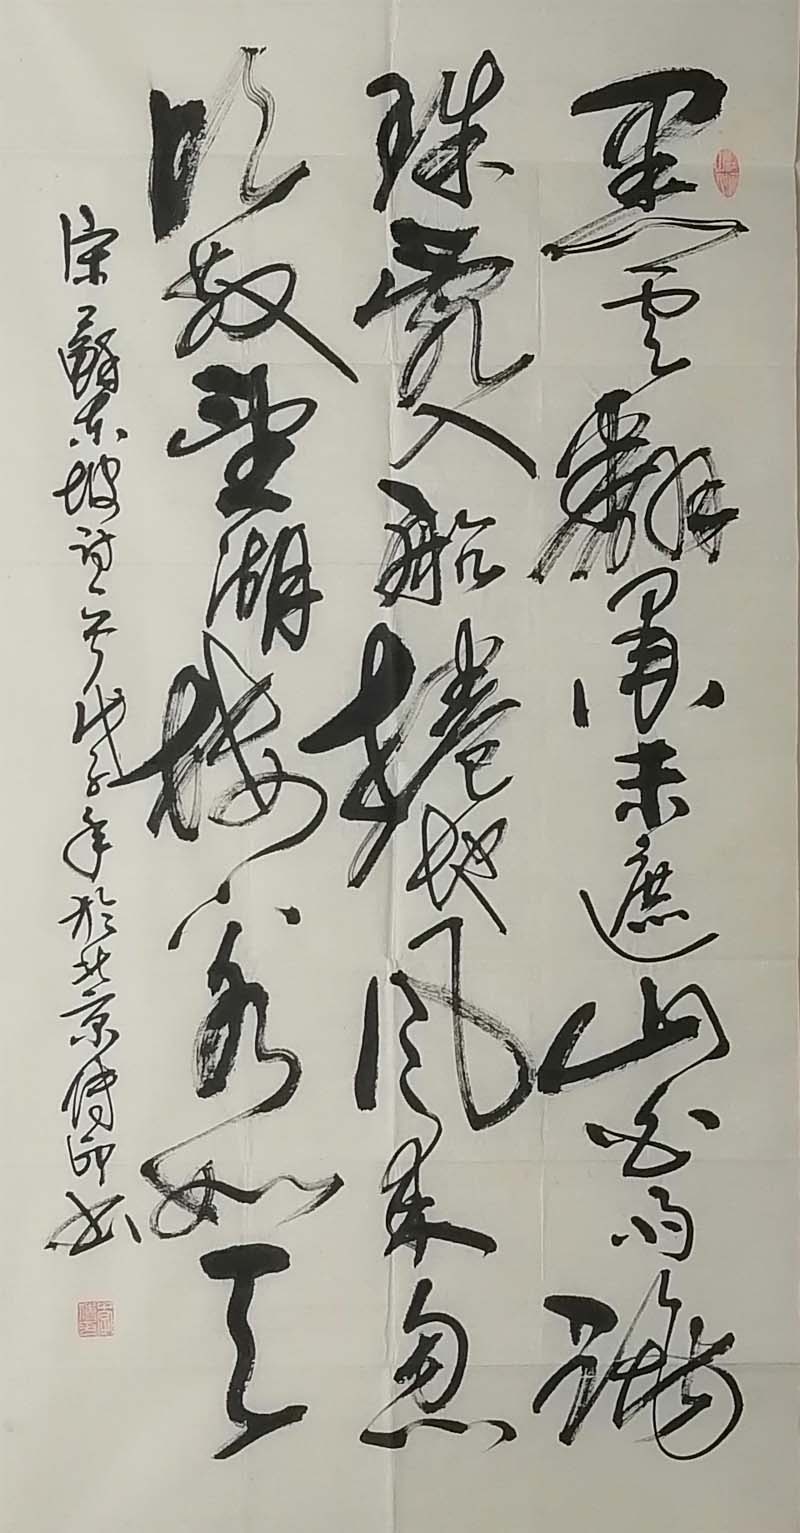 黑云翻墨未遮山白雨
珠亂入船捲地风来忽
吹散望湖楼下水如天
宋蘇东坡诗一首戊子年於北京书